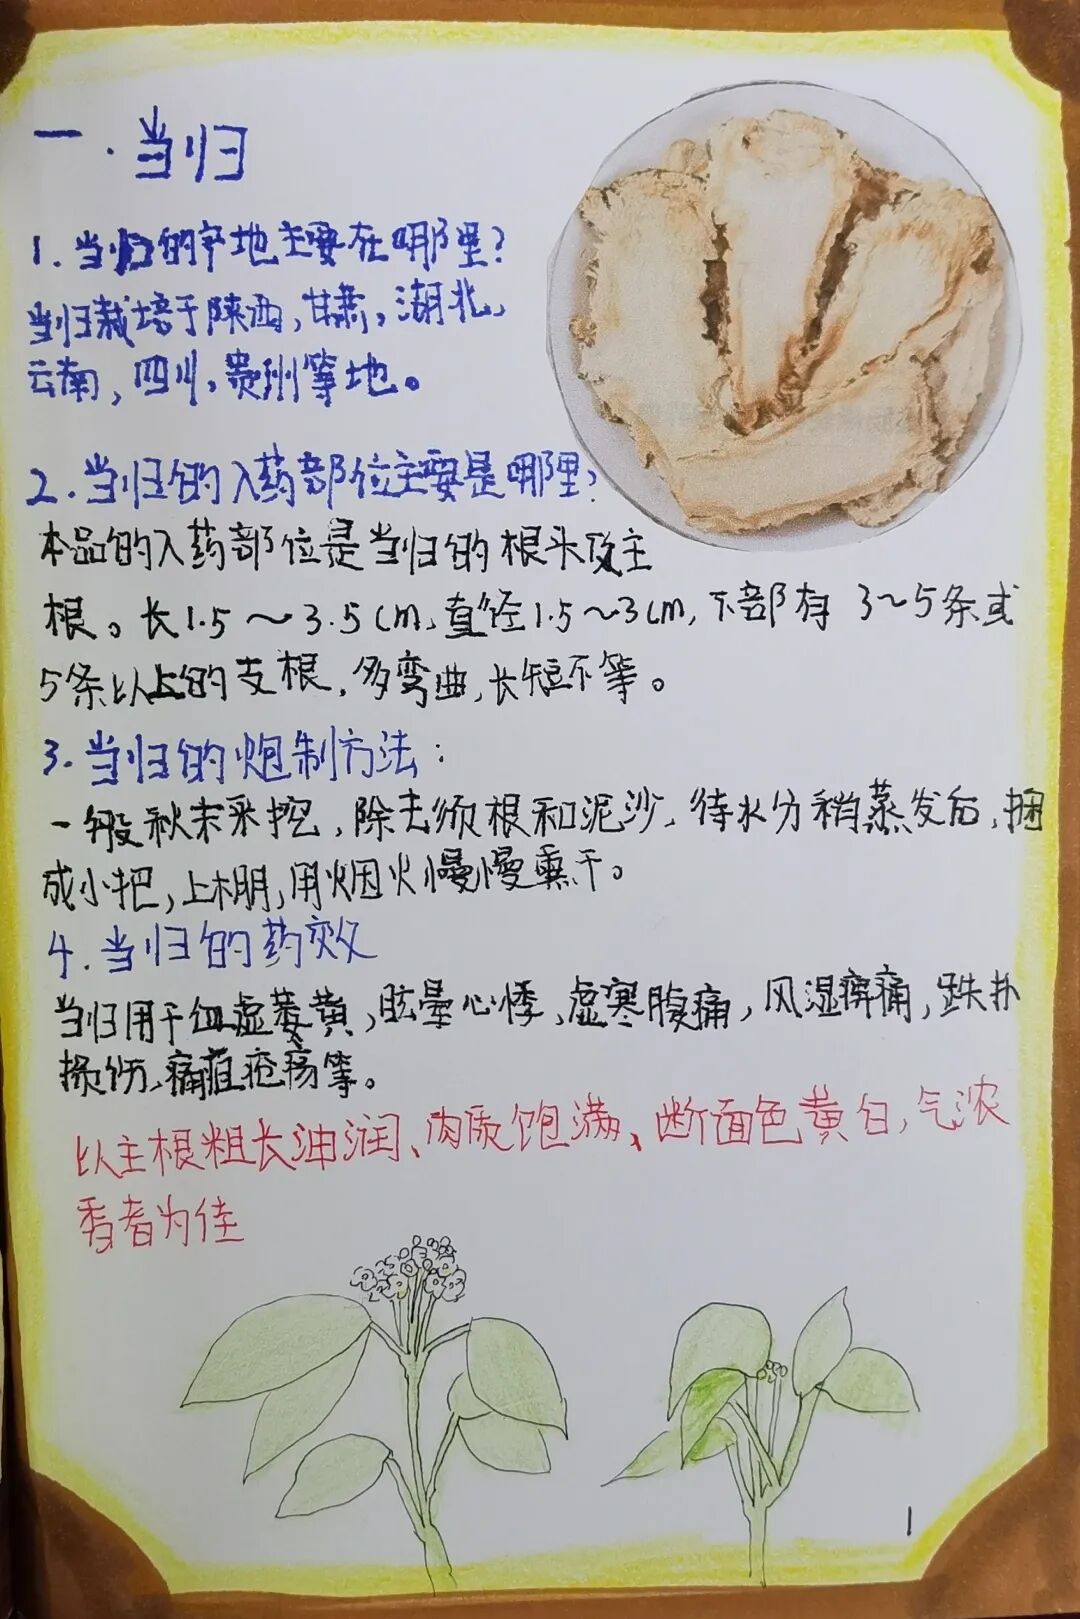 一.当归
1.当归的产地主要在哪里?
当归栽培于陕西,甘肃,湖北,
云南,四川,贵州等地。
2.当归的入药部位主要是哪里?
本品的入药部位是当归的根头及主
根。长1.5～3.5cm,直径1.5～3cm,下部有3～5条或
5条以上的支根,多弯曲,长短不等。
3.当归的炮制方法:
一般秋末采挖,除去须根和泥沙,待水分稍蒸发后,捆
成小把,上棚,用烟火慢慢熏干。
4.当归的药效
当归用于血虚萎黄,眩晕心悸,虚寒腹痛,风湿痹痛,跌扑
损伤,痈疽疮疡等。
以主根粗长油润、肉质饱满、断面色黄白,气浓
香者为佳
1